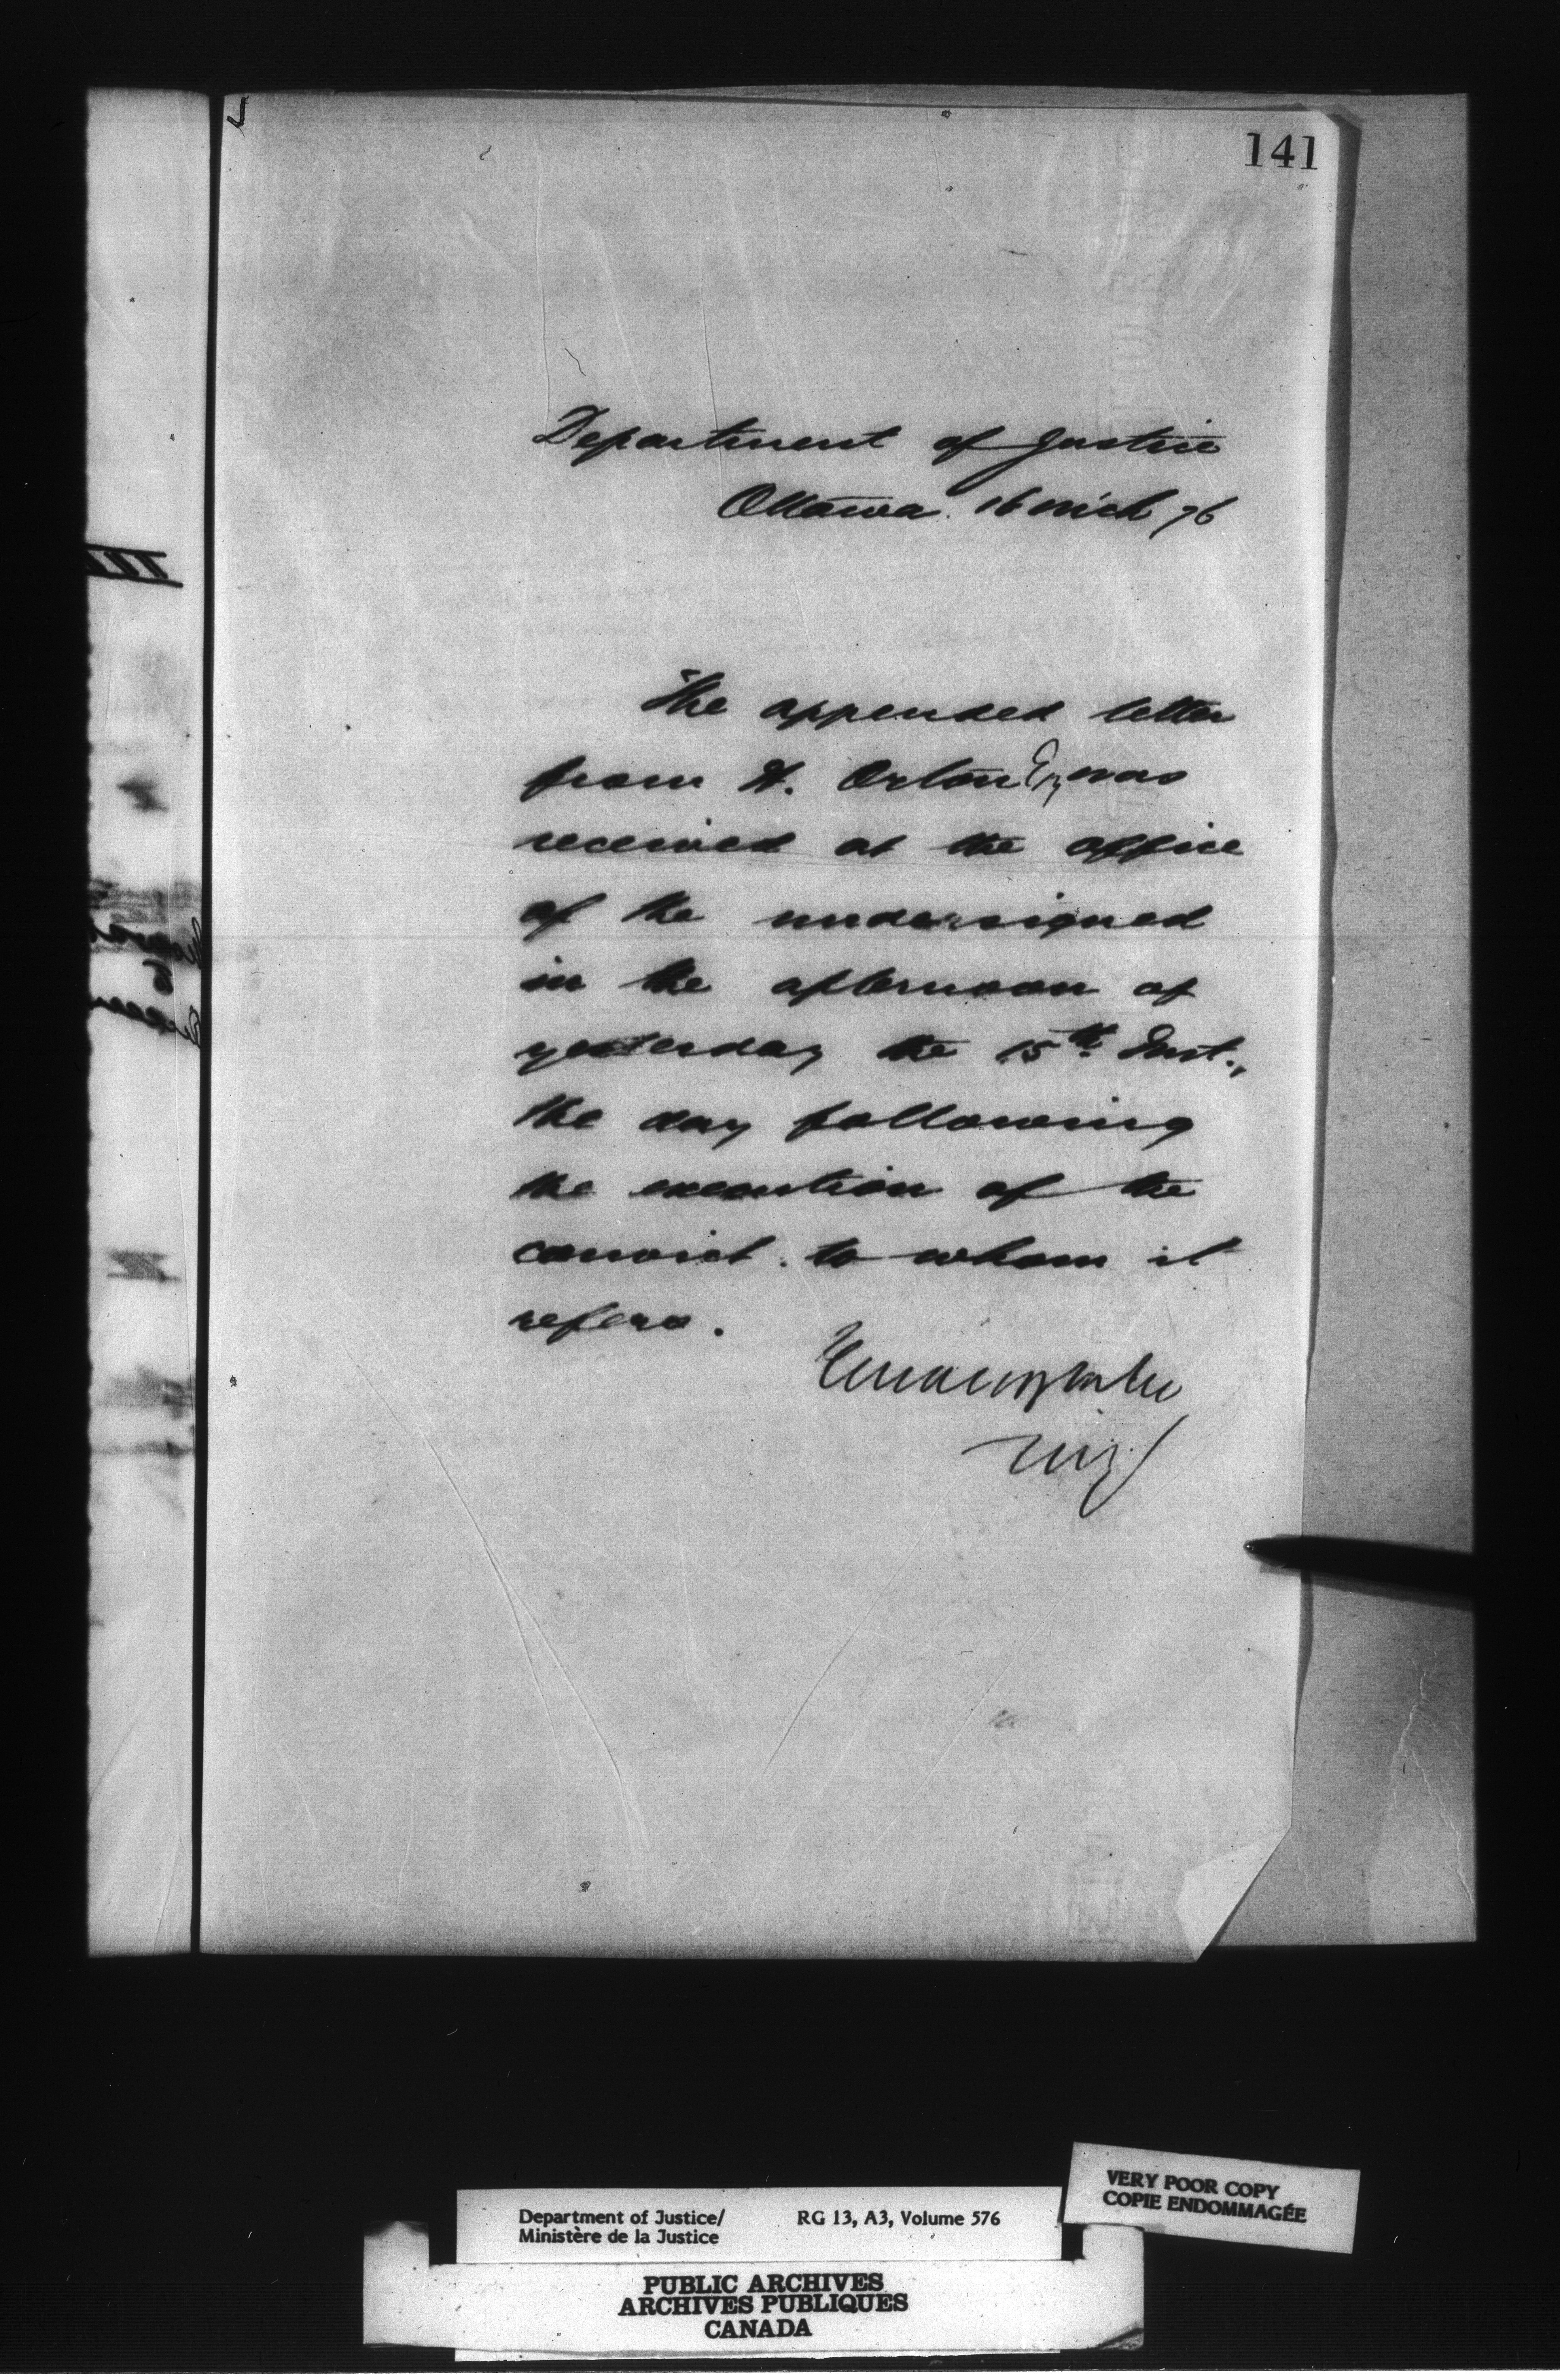 141
Department of Justice
Ottawa. 16 Mch 76
The appended letter
from H. Orton Esq was
received at the office
of the undersigned
in the afternoon of
yesterday the 15th Inst.,
the day following
the execution of the
convict to whom it
refers.
VERY POOR COPY
COPIE ENDOMMAGÉE
Department of Justice/ RG 13, A3, Volume 576
Ministère de la Justice
PUBLIC ARCHIVES
ARCHIVES PUBLIQUES
CANADA